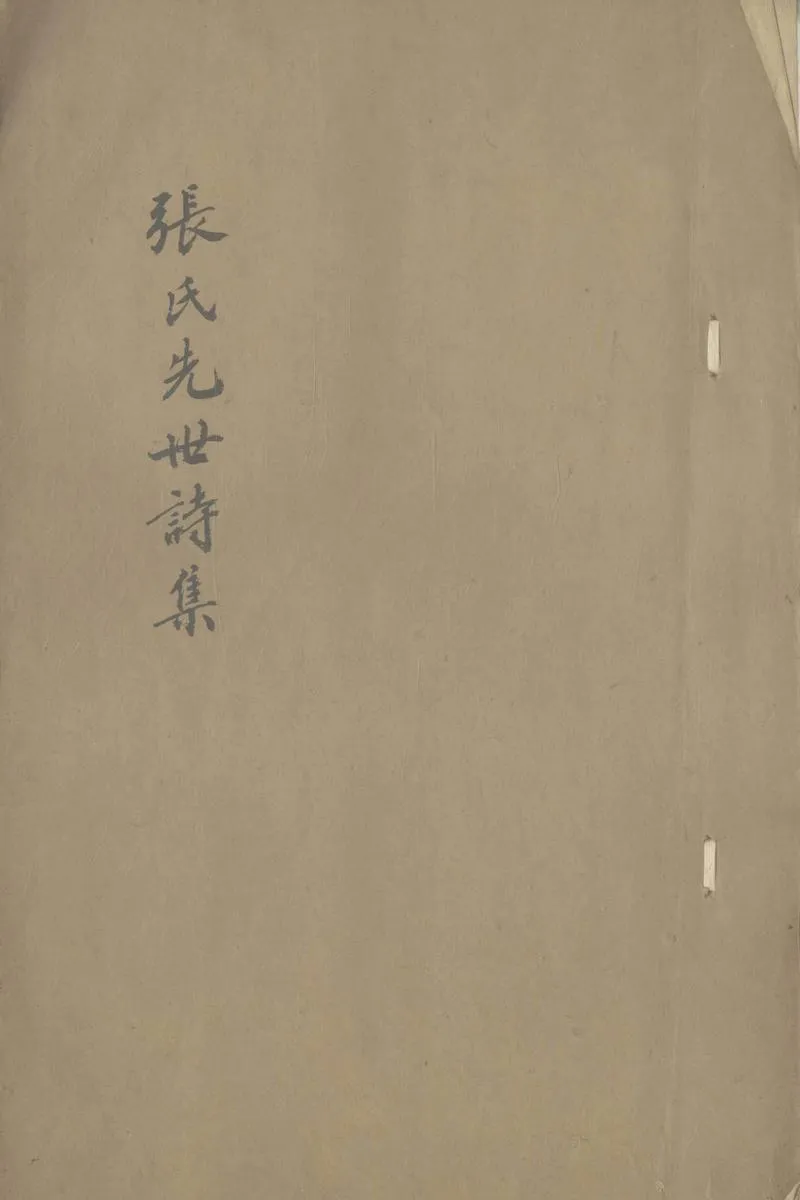 張氏先世詩集